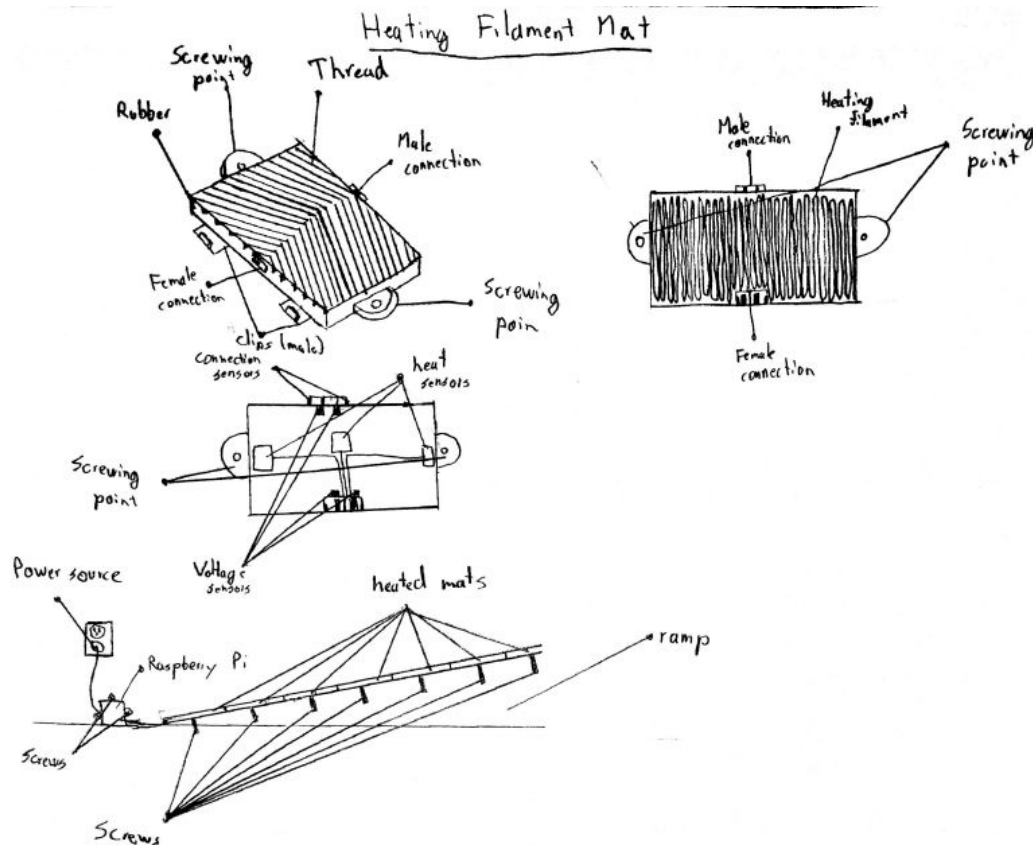 Heating Filament Mat
Screwing
point
Thread
Rubber
Male
connection
Female
connection
clips (male)
Screwing
poin
Male
connection
Heating
filament
Screwing
point
Female
connection
connection
sensors
heat
sensors
Screwing
point
Voltage
sensors
Power source
heated mats
ramp
Raspberry Pi
Screws
Screws